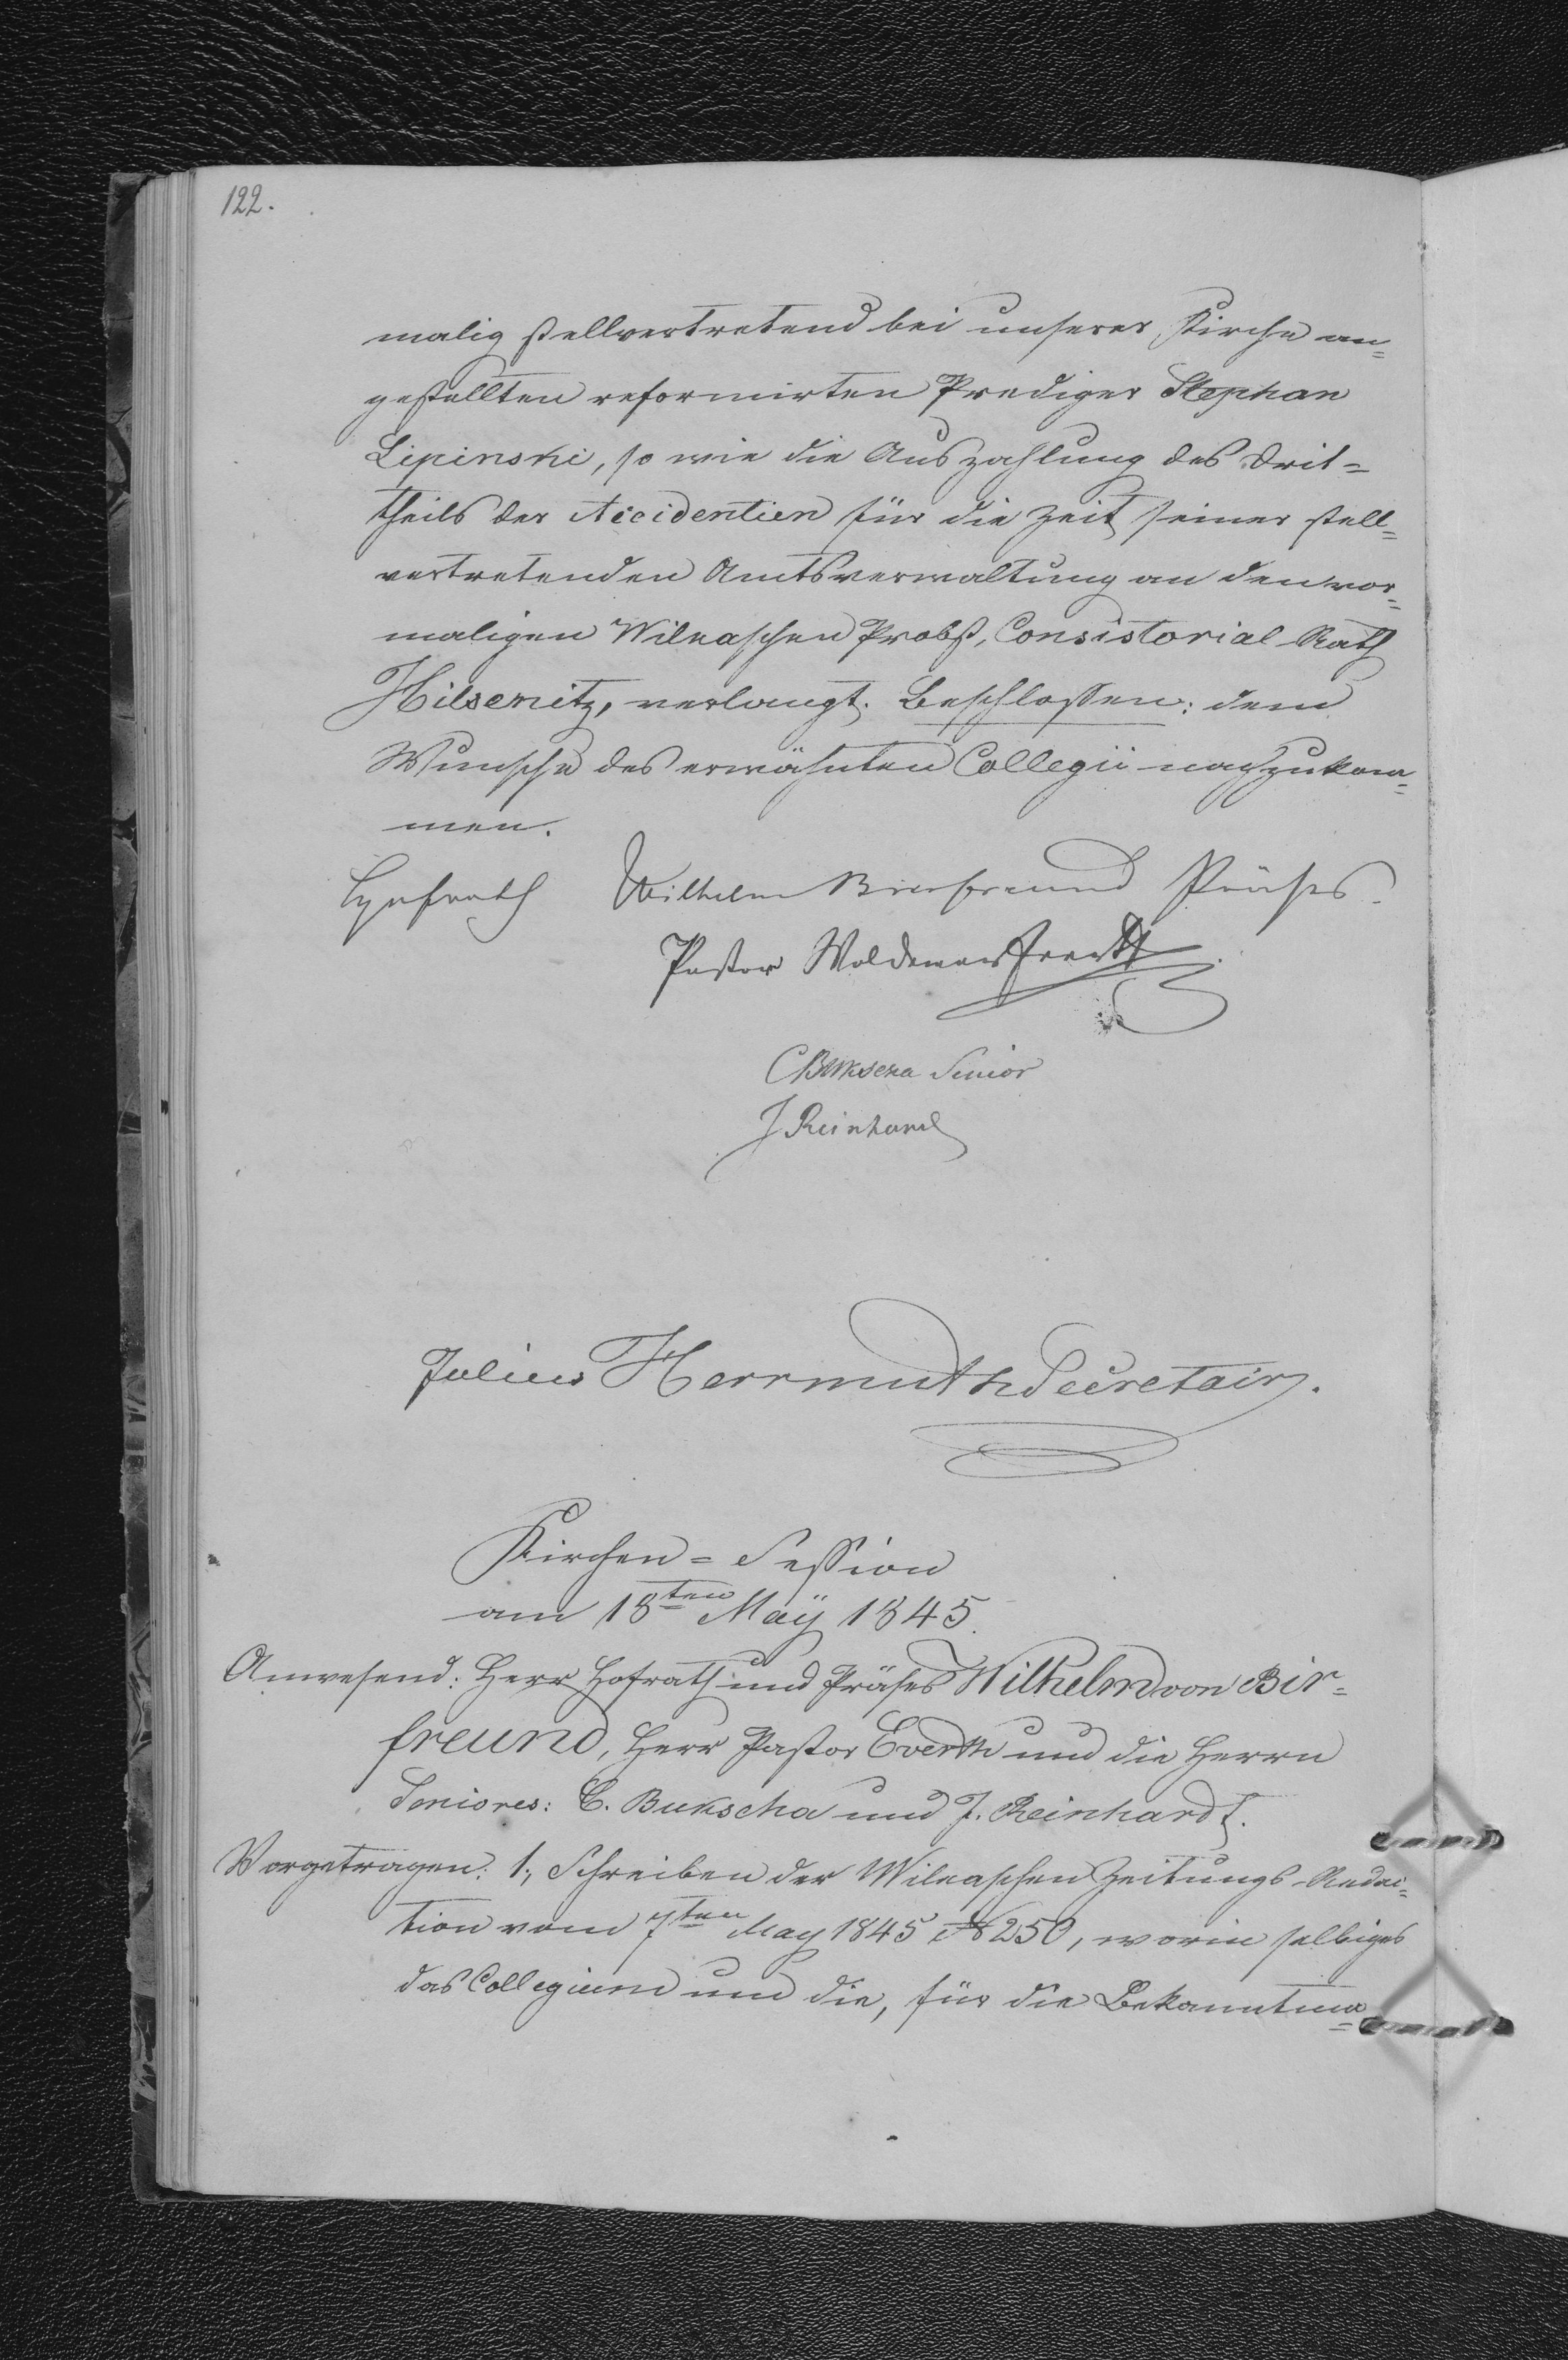 122.
malig stellvertretend bei unserer Kirche an=
gestellten reformirten Prediger Stephan
Lipinski, so wie die Auszahlung des Drit=
theils der Accidentien für die Zeit seiner stell=
vertretenden Amtsverwaltung an den vor=
maligen Wilnaschen Probst, Consistorial-Rath
Hilsenitz, verlangt. Beschlossen: dem
Wunsche des erwähnten Collegii nachzukom=
men.
Wilhelm Birfreund Präses.
Pastor Woldemar Everth
C Bukscha Senior
J Reinhard
Julius Herrmuth Secretair.
Kirchen=Session
am 18ten Maÿ 1845.
Anwesend: Herr Hofrath und Präses Wilhelm von Bir=
freund, Herr Pastor Everth und die Herrn
Seniores: C. Bukscha und J. Reinhardt.
Vorgetragen: 1, Schreiben der Wilnaschen Zeitungs-Redac=
tion vom 7ten May 1845 № 250, worin selbiges
das Collegium um die, für die Bekanntma=